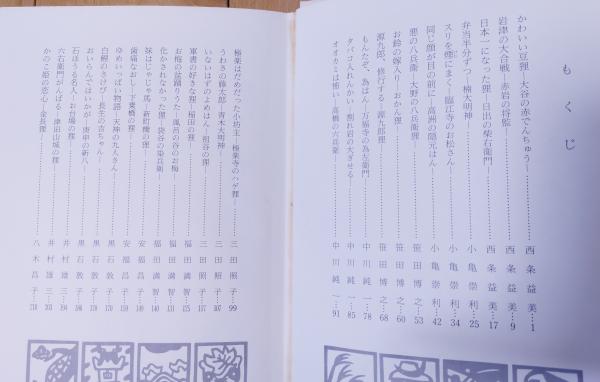 もくじ
かわいい豆狸―大谷の赤でんちゅう―………西条益美…1
岩津の大合戦―赤岩の将監………西条益美…9
日本一になった狸―日出の柴右衛門―………西条益美…17
弁当半分ずつ―楠大明神―………小亀崇利…25
スリを煙にまく―臨江寺のお松さん………小亀崇利…34
同じ顔が目の前に―高洲の隠元はん………小亀崇利…42
悪の八兵衛―大野の八兵衛狸―………笹田博之…53
お鈴の嫁入り―おかん狸………笹田博之…60
源九郎、修行する―源九郎狸………笹田博之…68
もんたぞ、為はん―万福寺の為左衛門………中川純一…78
タバコ入れんかい―割れ岩の大ぎせる………中川純一…85
オオカミは怖い―高橋の六兵衛―………中川純一…91
極楽はだめだった小坊主―極楽寺のハゲ狸―………三田照子…99
うわさの藤太郎―青木大明神―………三田照子…107
いないはずのよめはん―祖谷の狸………三田照子…117
軍書の好きな狸―稲田の狸―………福田満智…125
お梅の盆踊りうた―風呂の谷のお梅………福田満智…131
化かされなかった狸―袋谷の染兵衛―………福田満智…140
妹はじゃじゃ馬―新町橋の狸………安福昌子…149
歯痛なおし―下莱橋の狸………安福昌子…159
ゆめいっぱい物語―天神の九人さん―………安福昌子…168
白鯉のさけび―長生の吉ちゃん………黒石敦子…176
おいらんではいかが―庚申の新八―………黒石敦子…185
石ほうる名人―お台場の狸………井村雄三…194
六右衛門がんばる―津田山城の狸―………井村雄三…203
かのこ姫の恋心―金長狸―………八木昌子…210